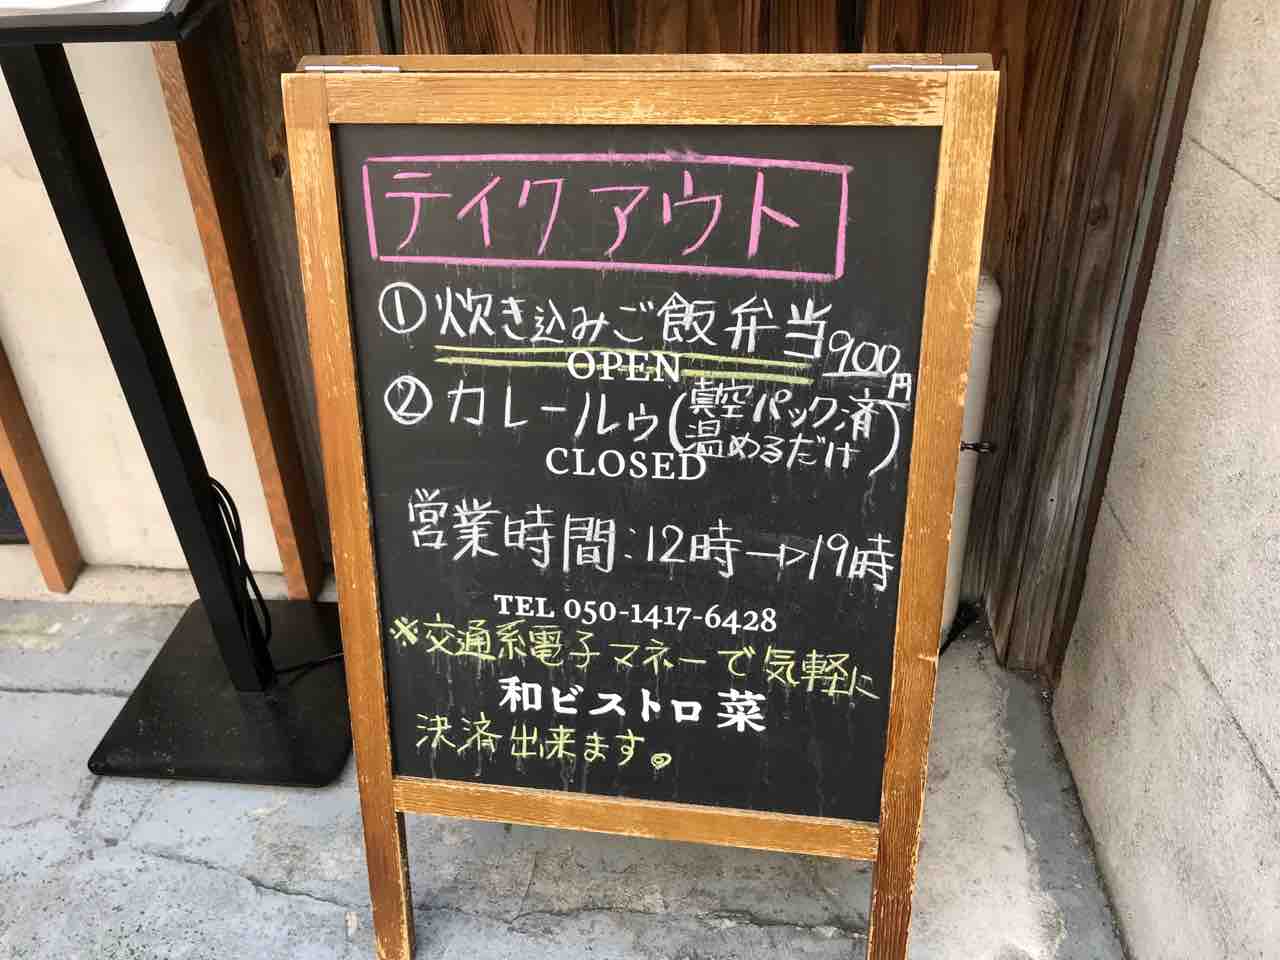 テイクアウト
①炊き込みご飯弁当900円
OPEN
②カレールゥ(真空パック済
温めるだけ)
CLOSED
営業時間:12時→19時
TEL 050-1417-6428
※交通系電子マネーで気軽に
和ビストロ 菜
決済出来ます。